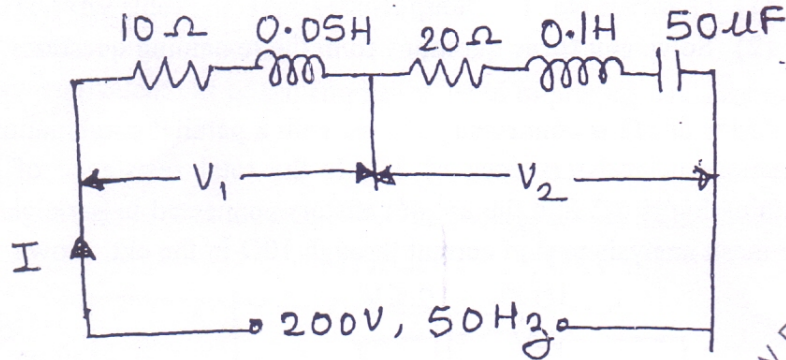 10Ω 0.05H 20Ω 0.1H 50µF
V₁ V₂
I
200V, 50Hz